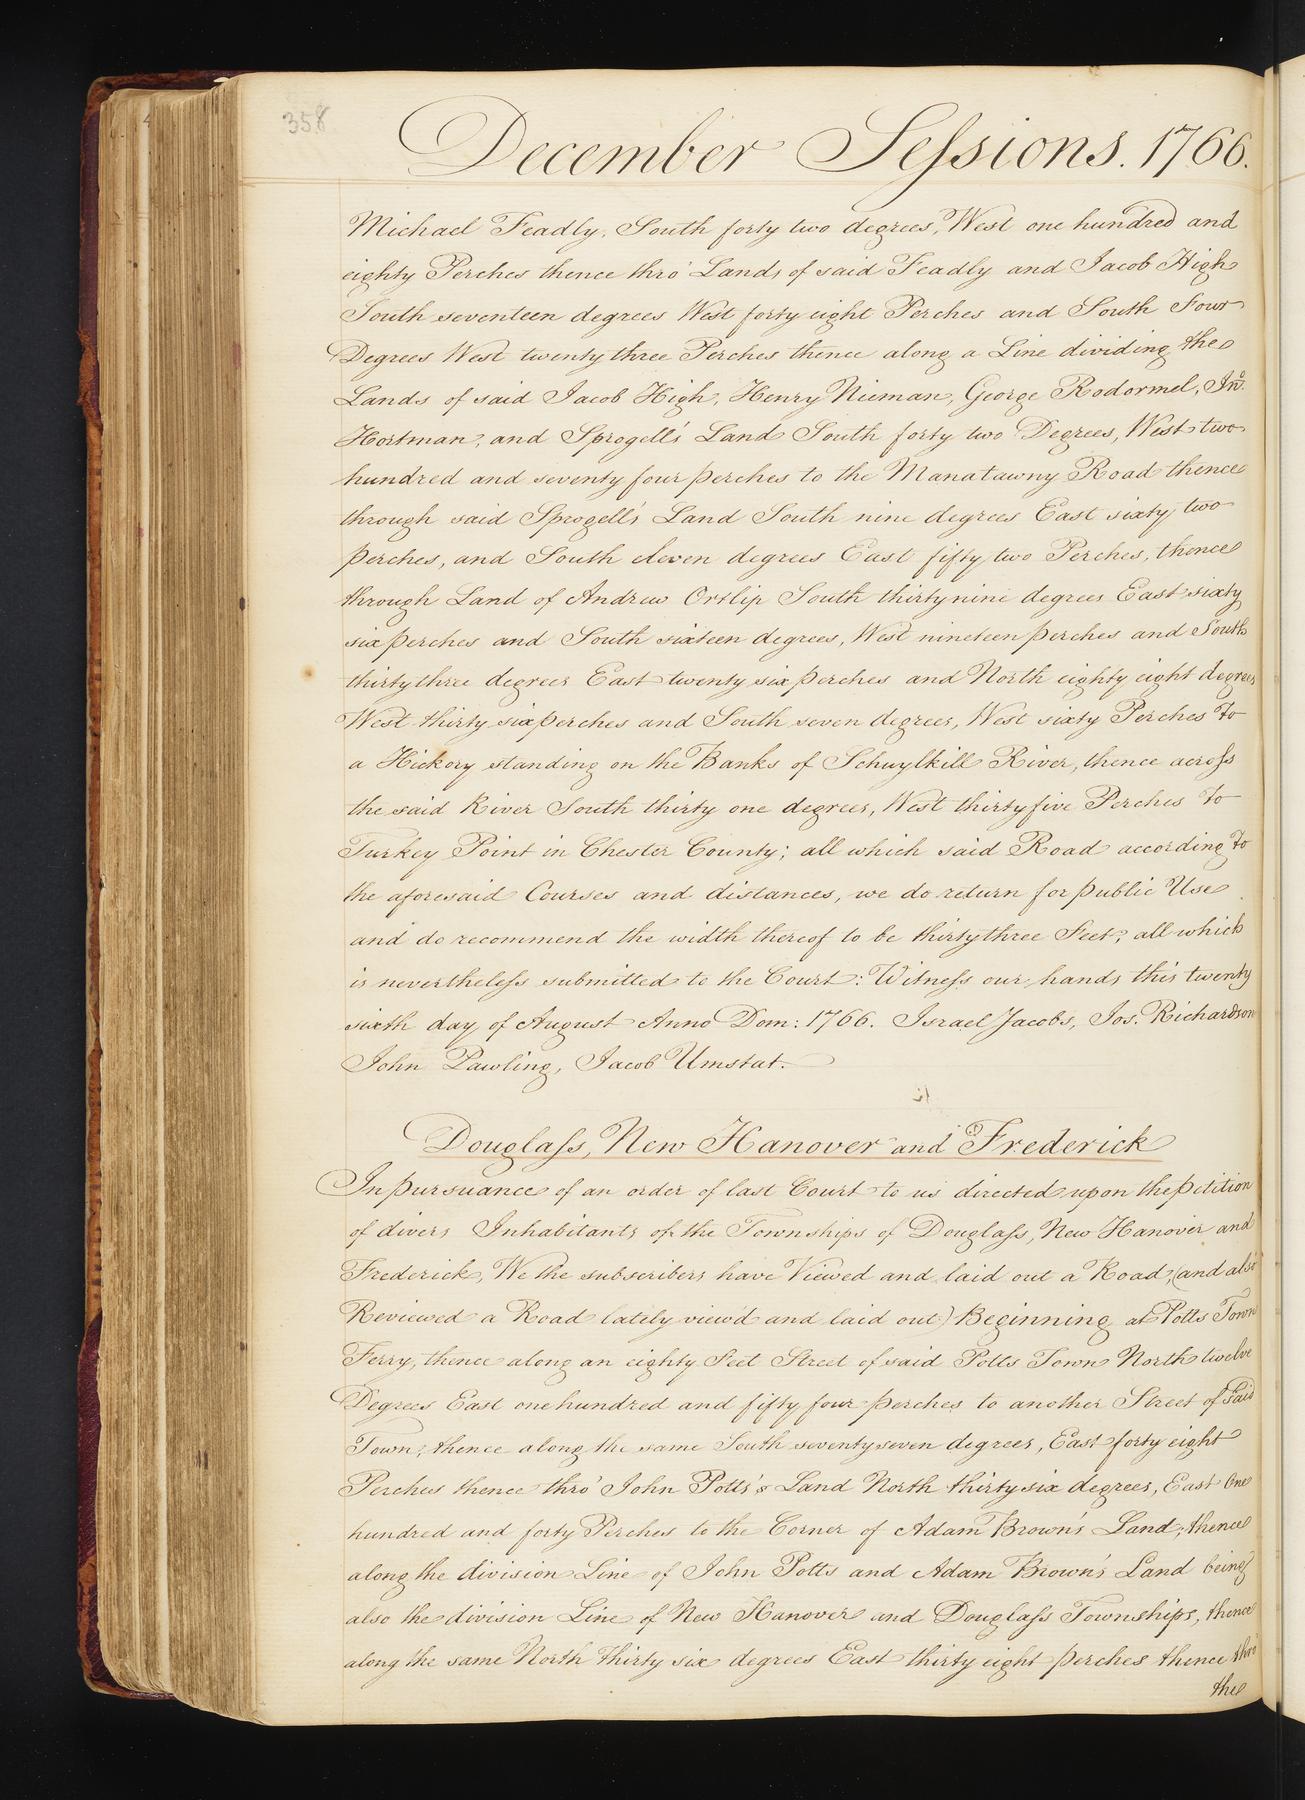 358
December Sessions. 1766.
Michael Feadly, South forty two degrees, West one hundred and
eighty Perches thence thro' Lands of said Feadly and Jacob High
South seventeen degrees West forty eight Perches and South Four
Degrees West twenty three Perches thence along a Line dividing the
Lands of said Jacob High, Henry Nieman, George Rodormel, Jno.
Hortman, and Sprogell's Land South forty two Degrees, West two
hundred and seventy four perches to the Manatawny Road thence
through said Sprogell's Land South nine degrees East sixty two
perches, and South eleven degrees East fifty two Perches, thence
through Land of Andrew Ortlip South thirty nine degrees East sixty
six perches and South sixteen degrees, West nineteen perches and South
thirty three degrees East twenty six perches and North eighty eight degrees
West thirty six perches and South seven degrees, West sixty Perches to
a Hickory standing on the Banks of Schuylkill River, thence across
the said River South thirty one degrees, West thirty five Perches to
Turkey Point in Chester County; all which said Road according to
the aforesaid Courses and distances, we do return for public Use
and do recommend the width thereof to be thirty three Feet, all which
is nevertheless submitted to the Court: Witness our hands this twenty
sixth day of August Anno Dom: 1766. Israel Jacobs, Jos. Richardson
John Pawling, Jacob Umstat.
Douglass, New Hanover and Frederick
In pursuance of an order of last Court to us directed upon the petition
of divers Inhabitants of the Townships of Douglass, New Hanover and
Frederick, We the subscribers have Viewed and laid out a Road, (and also
Reviewed a Road lately view'd and laid out) Beginning at Potts Town
Ferry, thence along an eighty Feet Street of said Potts Town North twelve
Degrees East one hundred and fifty four perches to another Street of said
Town; thence along the same South seventy seven degrees, East forty eight
Perches thence thro' John Potts's Land North thirty six degrees, East One
hundred and forty Perches to the Corner of Adam Brown's Land; thence
along the division Line of John Potts and Adam Brown's Land being
also the division Line of New Hanover and Douglass Townships, thence
along the same North thirty six degrees East thirty eight perches thence thro'
the